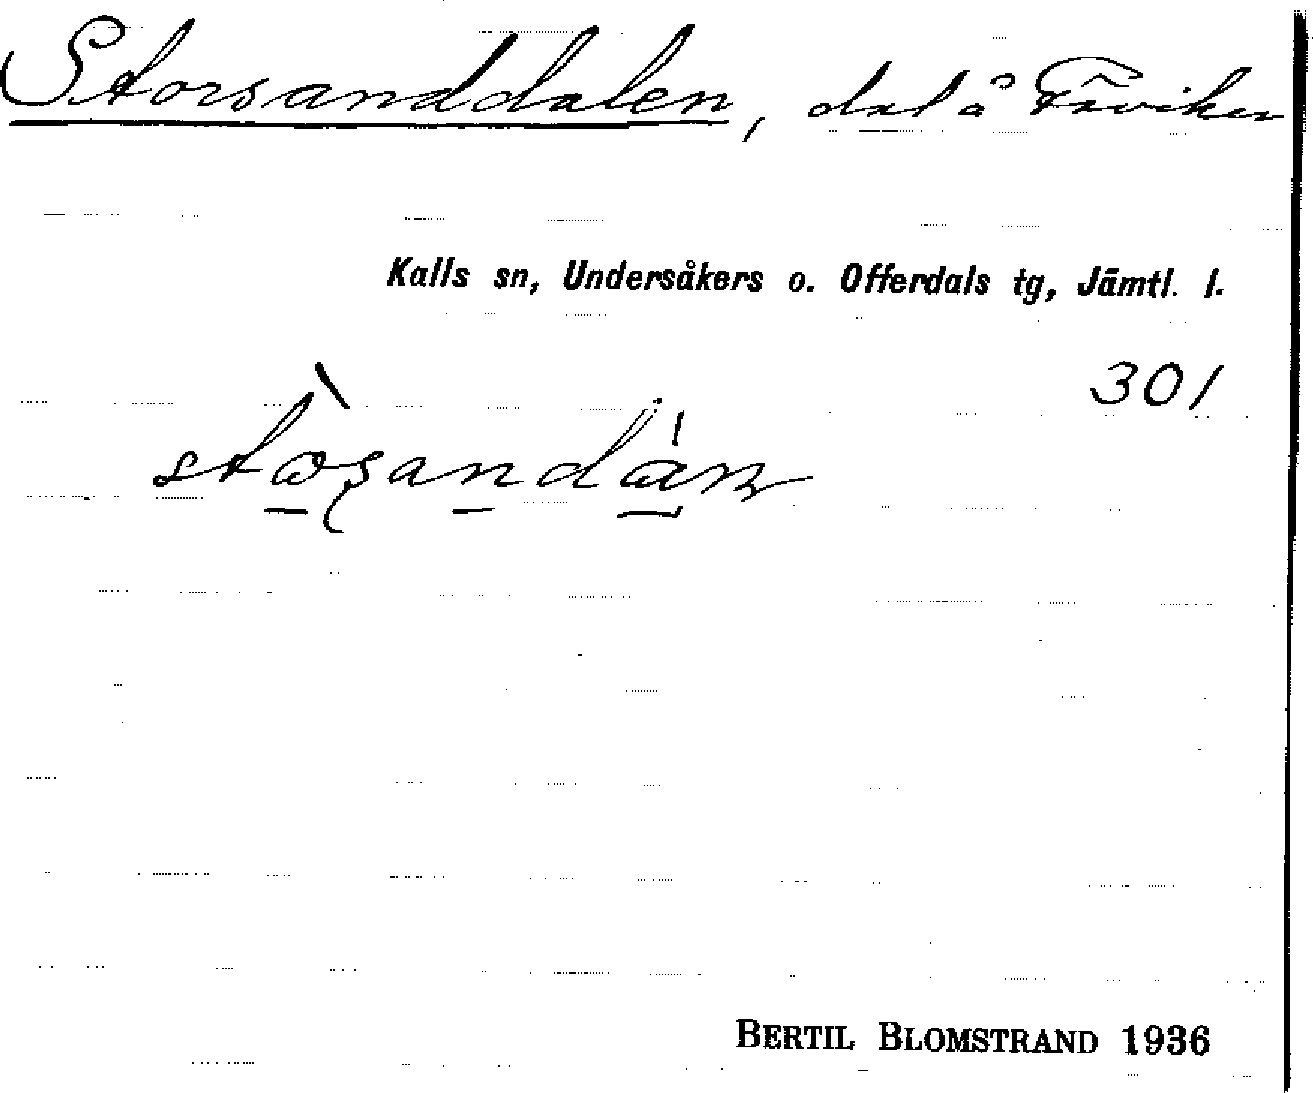 Storsanddalen, dal å Fäviken
Kalls sn, Undersåkers o. Offerdals tg, Jämtl. l.
301
BERTIL BLOMSTRAND 1936